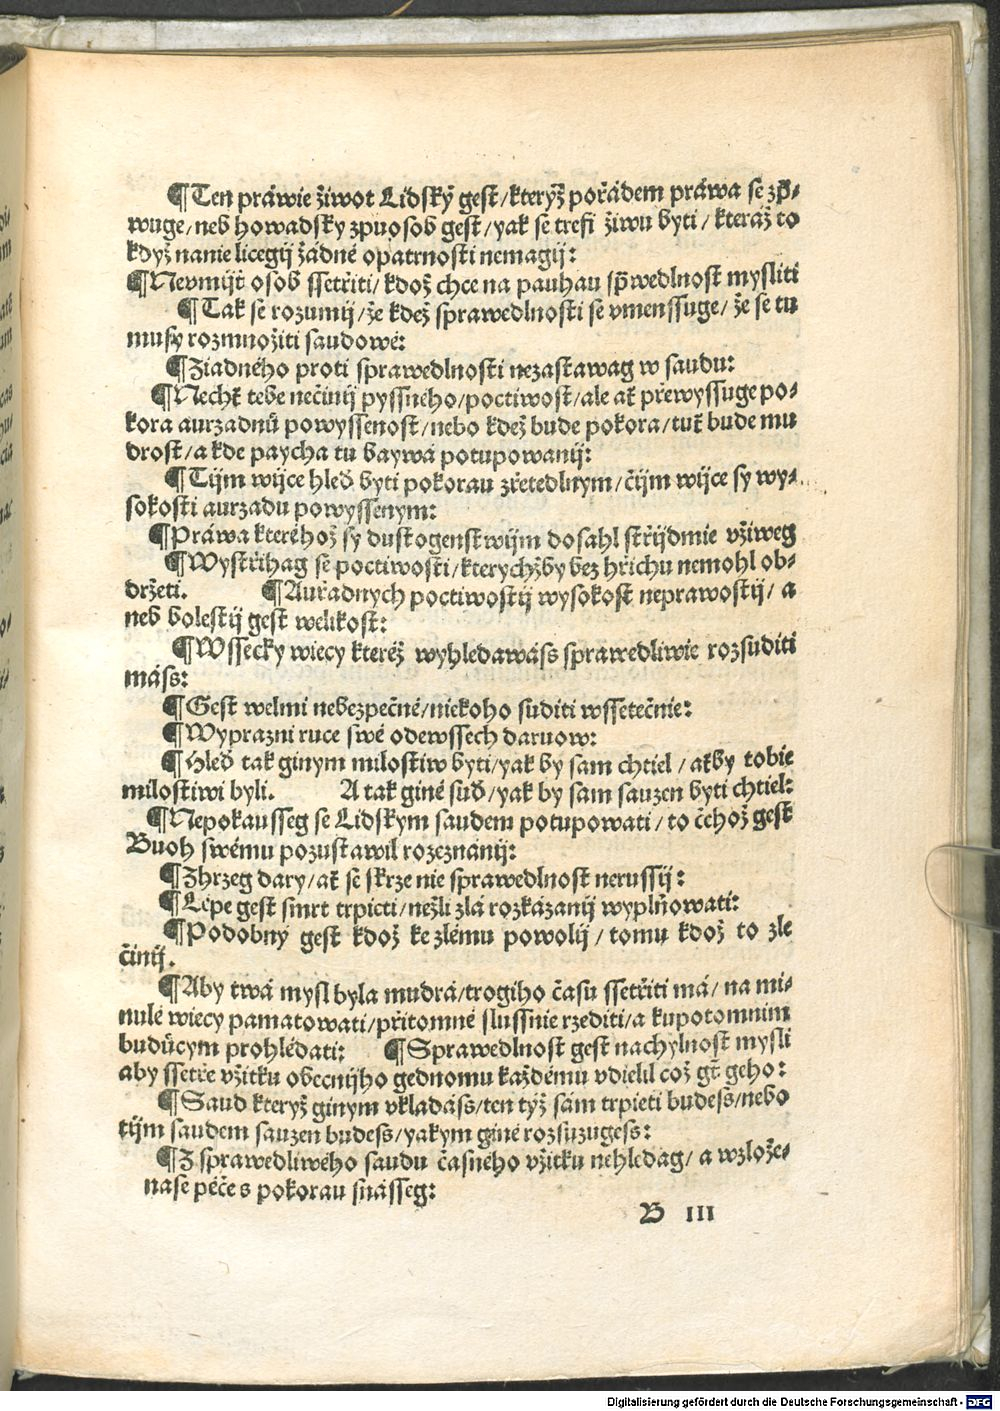 ¶Ten práwie žiwot Lidský gest/kterýž pořádem práwa se zp̄-
wuge/neb howadsky zpuosob gest/yak se trefi žiwu byti/kteráž to
když nanie licegij žádné opatrnosti nemagij:
¶Nevmijť osob ssetřiti/kdož chce na pauhau sp̄wedlnost mysliti
¶Tak se rozumij/že kdež sprawedlnosti se vmenssuge/že se tu
musy rozmnožiti saudowé:
¶Ziadného proti sprawedlnosti nezastawag w saudu:
¶Nechť tebe nečinij pyssného/poctiwost/ale ať přewyssuge po-
kora aurzadnů powyssenost/nebo kdež bude pokora/tuť bude mu
drost/a kde paycha tu baywá potupowanij:
¶Tijm wijce hleď byti pokorau zřetedlnym/čijm wijce sy wy-
sokosti aurzadu powyssenym:
¶Práwa kteréhož sy dustogenstwijm dosahl střijdmie vžiweg
¶Wystřihag se poctiwosti/kterychžby bez hřichu nemohl ob-
držeti. ¶Auřadnych poctiwostij wysokost neprawostij/a
neb bolestij gest welikost:
¶Wssecky wiecy kteréž wyhledawáss sprawedliwie rozsuditi
máss:
¶Gest welmi nebezpečné/niekoho suditi wssetečnie:
¶Wyprazni ruce swé odewssech daruow:
¶Hleď tak ginym milostiw byti/yak by sam chtiel/aťby tobie
milostiwi byli. A tak giné suď/yak by sam sauzen byti chtiel:
¶Nepokausseg se Lidskym saudem potupowati/to čehož gest
Buoh swému pozustawil rozeznánij:
¶Zhrzeg dary/ať se skrze nie sprawedlnost nerussij:
¶Lépe gest smrt trpicti/nežli zlá rozkázanij wyplňowati:
¶Podobný gest kdož ke zlému powolij/tomu kdož to zle
činij.
¶Aby twá mysl byla mudrá/trogiho času ssetřiti má/na mi-
nulé wiecy pamatowati/přitomné slussnie rzediti/a kupotomnim
budúcym prohlédati: ¶Sprawedlnost gest nachylnost mysli
aby ssetře vžitku obecnijho gednomu každému vdielil což gť geho:
¶Saud kteryž ginym vkladáss/ten týž sám trpieti budess/nebo
tijm saudem sauzen budess/yakym giné rozsuzugess:
¶Z sprawedliwého saudu časného vžitku nehledag/a wzlože-
nase péče s pokorau snásseg:
B III
Digitalisierung gefördert durch die Deutsche Forschungsgemeinschaft - DFG